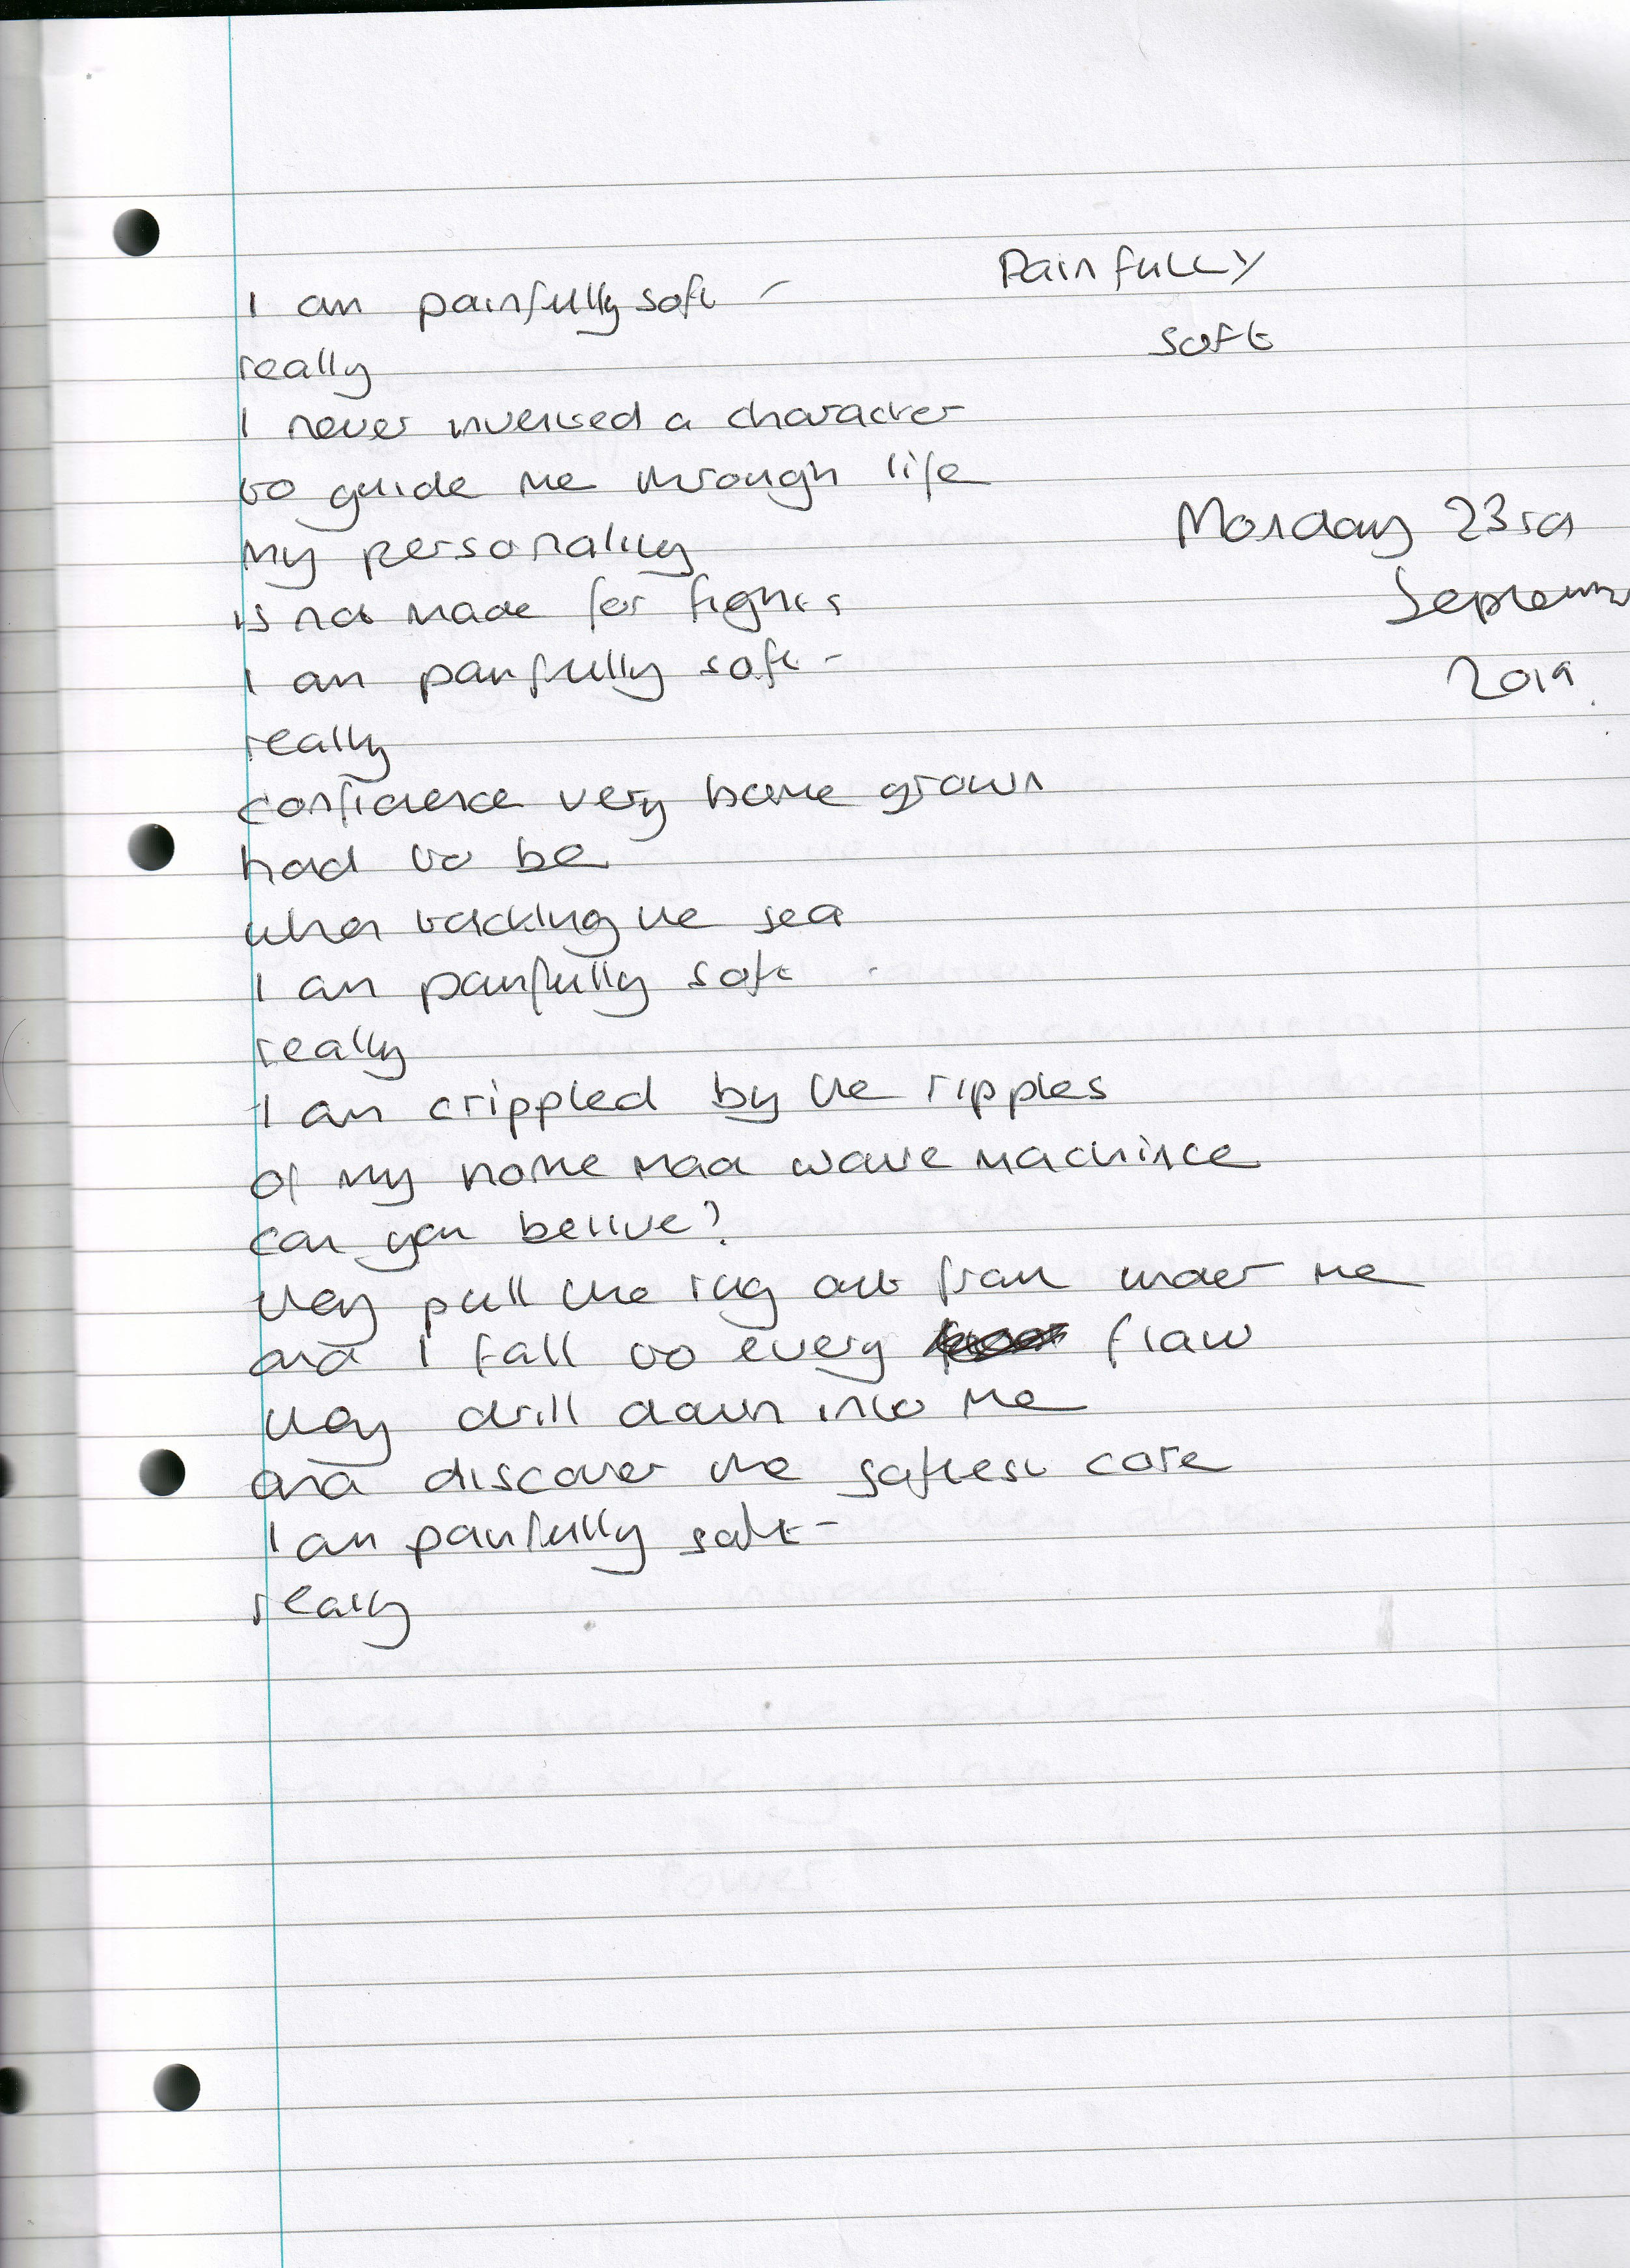 Painfully
soft
I am painfully soft -
really
I never invented a character
to guide me through life
Monday 23rd
September
2019
my personality
is not made for fights
I am painfully soft -
really
confidence very home grown
had to be
when tackling the sea
I am painfully soft -
really
I am crippled by the ripples
of my home mad wave machince
can you belive?
they pull the rug out from under me
and I fall to every flaw
they drill down into me
and discover the softest core
I am painfully soft -
really